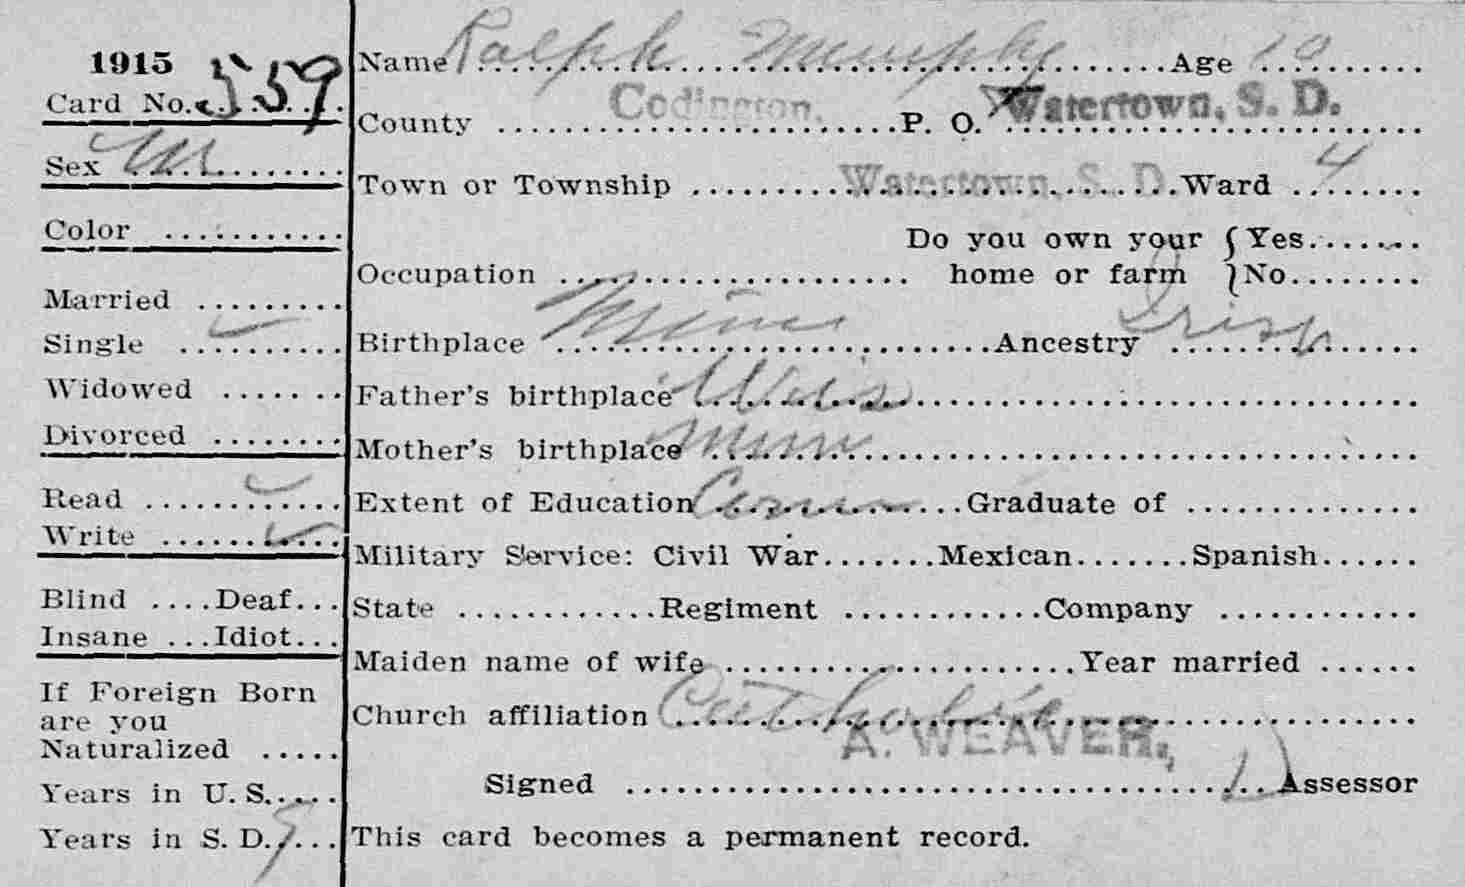 1915
Card No. 559
Sex M
Color
Married
Single ✓
Widowed
Divorced
Read ✓
Write ✓
Blind .... Deaf...
Insane ... Idiot...
If Foreign Born
are you
Naturalized .....
Years in U. S.....
Years in S. D. 9
Name Ralph Murphy Age 10
County Codington. P. O. Watertown, S. D.
Town or Township Watertown, S. D. Ward 4
Do you own your { Yes.......
Occupation .................. home or farm } No........
Birthplace Minn Ancestry Irish
Father's birthplace Wis
Mother's birthplace Minn
Extent of Education Com Graduate of ..............
Military Service: Civil War.......Mexican.......Spanish......
State ............Regiment ............Company ............
Maiden name of wife ......................Year married ......
Church affiliation Catholic
A. WEAVER,
Signed ........................................Assessor
This card becomes a permanent record.